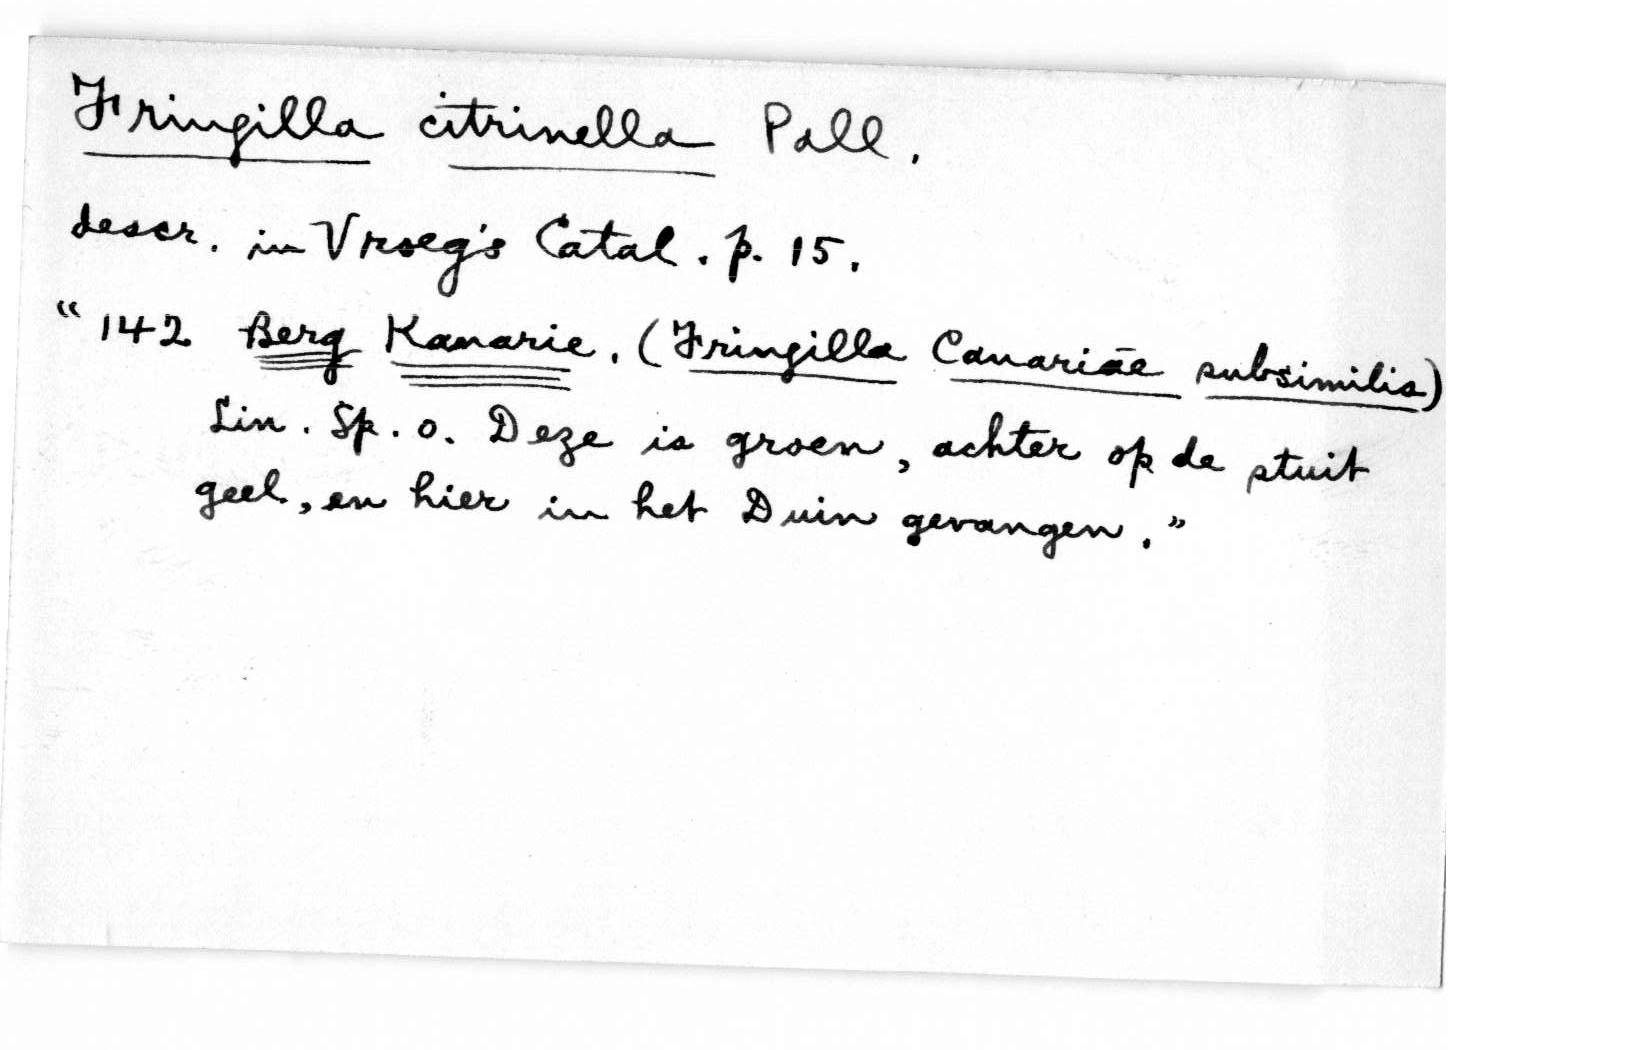 Fringilla citrinella Pall.
descr. in Vroeg's Catal. p. 15.
"142 Berg Kanarie. (Fringilla Canariāe subsimilis)
Lin. Sp. o. Deze is groen, achter op de stuit
geel, en hier in het Duin gevangen."